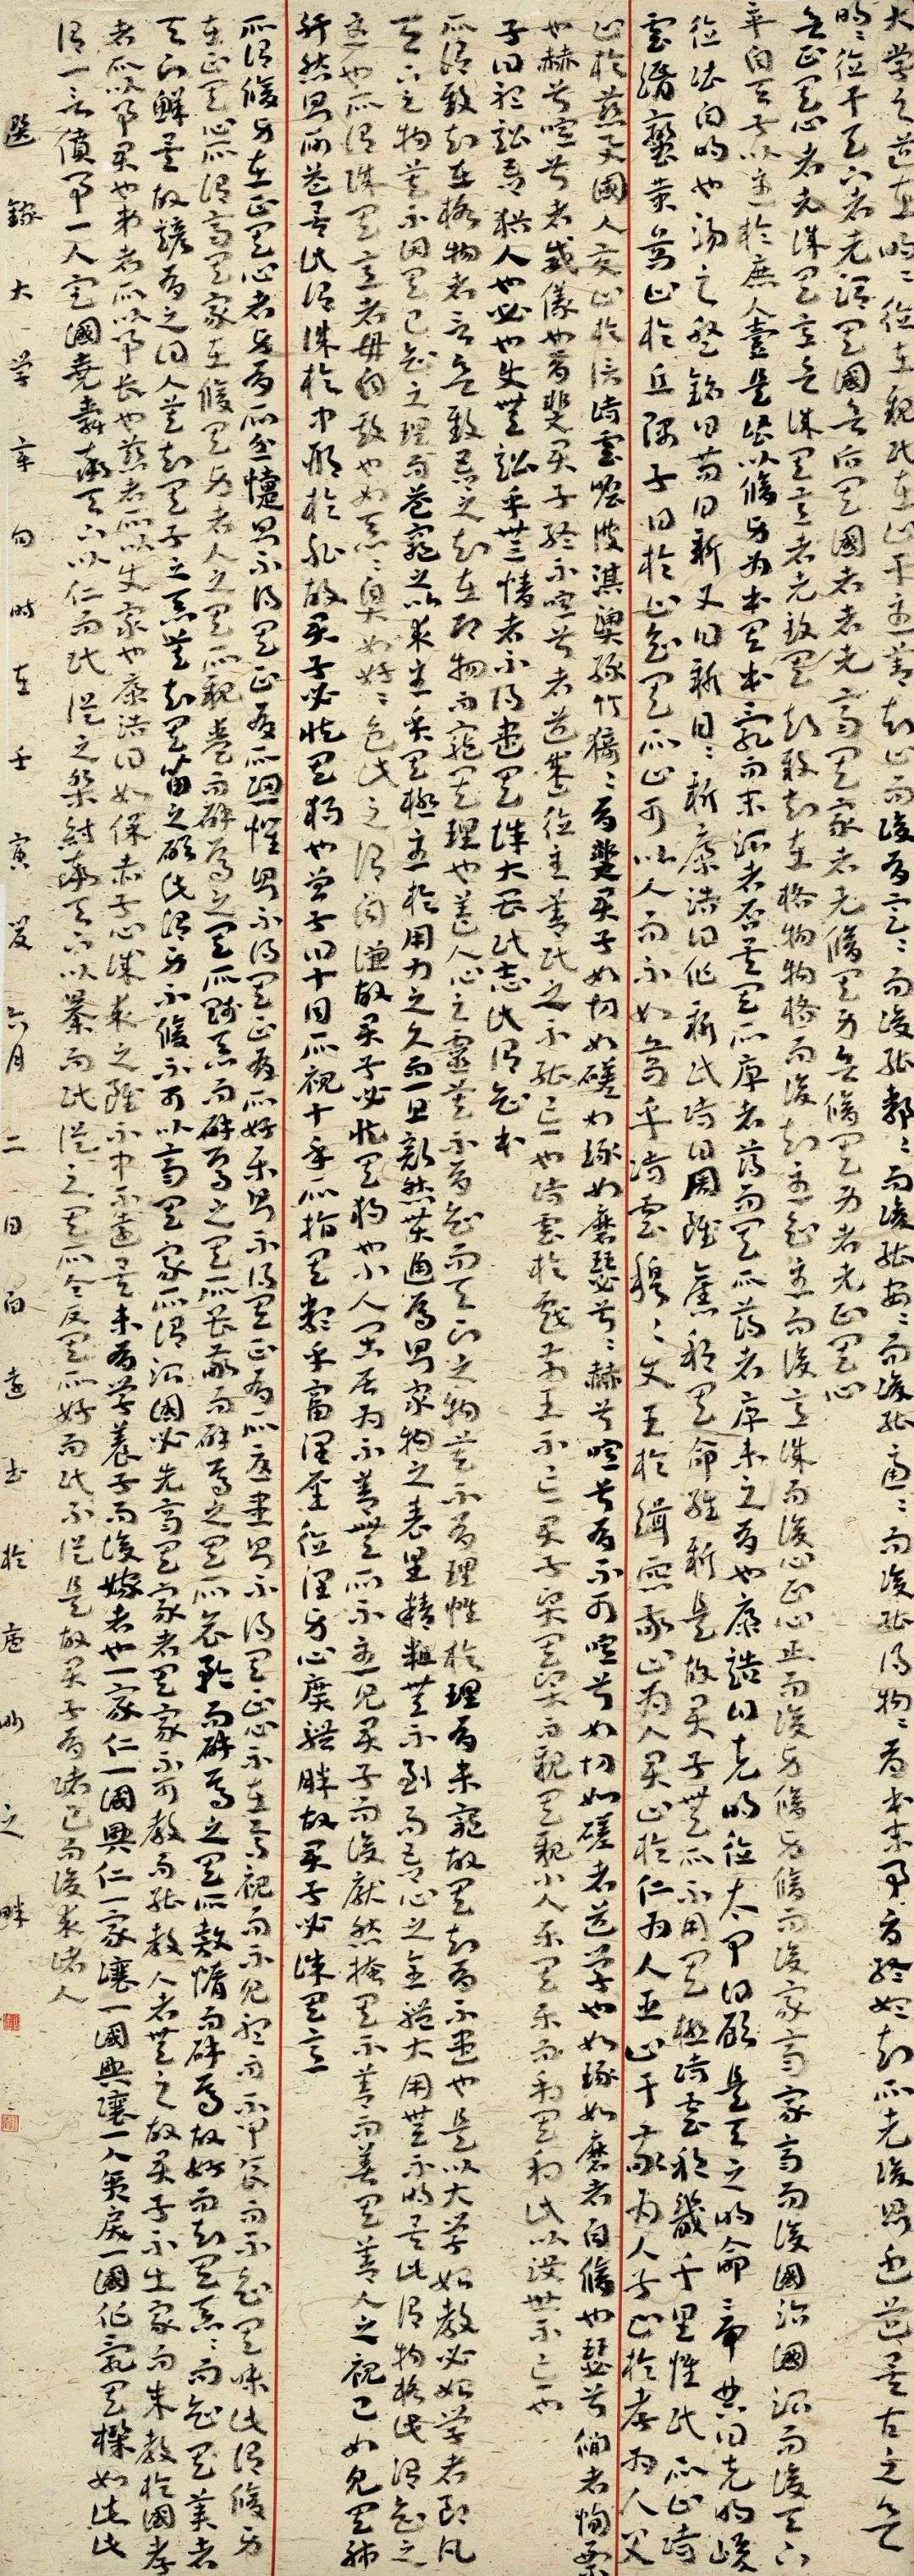 大学之道在明々德在親民在止于至善々知止而後有定々而後能靜々而後能安々而後能慮々而後能得物々有本末事有終始知所先後則近道矣古之欲
明々德于天下者先治其國欲治其國者先齊其家欲齊其家者先修其身欲修其身者先正其心
欲正其心者先誠其意欲誠其意者先致其知致知在格物物格而後知至知至而後意誠而後心正心正而後身修身修而後家齊家齊而後國治國治而後天下
平自天子以至於庶人壹是皆以修身為本其本亂而末治者否矣其所厚者薄而其所薄者厚未之有也康誥曰克明德太甲曰顧是天之明命帝典曰克明峻
德皆自明也湯之盤銘曰苟日新又日新日々新康誥曰作新民詩曰周雖舊邦其命維新是故君子無所不用其極詩云邦畿千里惟民所止詩
云緡蠻黃鳥止於丘隅子曰於止知其所止可以人而不如鳥乎詩云穆々文王於緝熙敬止為人君止於仁為人臣止于敬為人子止於孝為人父
止於慈與國人交止於信詩云瞻彼淇澳綠竹猗々有斐君子如切如磋如琢如磨瑟兮赫兮喧兮有不可喧兮如切如磋者道学也如琢如磨者自修也瑟兮僩者恂栗
也赫兮喧兮者威儀也有斐君子終不喧兮者道盛德至善民之不能忘也詩云於戲前王不忘君子賢其賢而親其親小人樂其樂而利其利此以没世不忘也
子曰聽訟吾猶人也必也使無訟乎無情者不得盡其誠大畏民志此謂知本
所謂致知在格物者言欲致吾之知在即物而窮其理也蓋人心之靈莫不有知而天下之物莫不有理惟於理有未窮故其知有不盡也是以大学始教必始学者即凡
天下之物莫不因其已知之理而益窮之以求至乎其極至於用力之久而一旦豁然貫通焉則眾物之表里精粗無不到而吾心之全體大用無不明矣此謂物格此謂知之
至也所謂誠其意者毋自欺也如惡々臭如好々色此之謂自謙故君子必慎其獨也小人閒居為不善無所不至見君子而後厭然掩其不善而善其善人之視己如見其肺
肝然則何益矣此謂誠於中形於外故君子必慎其獨也曾子曰十目所視十手所指其嚴乎富潤屋德潤身心廣體胖故君子必誠其意
所謂修身在正其心者身有所忿懥則不得其正有所恐懼則不得其正有所好樂則不得其正有所憂患則不得其正心不在焉視而不見聽而不聞食而不知其味此謂修身
在正其心所謂齊其家在修其身者人之其所親愛而辟焉之其所賤惡而辟焉之其所畏敬而辟焉之其所哀矜而辟焉之其所敖惰而辟焉故好而知其惡々而知其美者
天下鮮矣故諺有之曰人莫知其子之惡莫知其苗之碩此謂身不修不可以齊其家所謂治國必先齊其家者其家不可教而能教人者無之故君子不出家而成教於國孝
者所以事君也弟者所以事長也慈者所以使家也康誥曰如保赤子心誠求之雖不中不遠矣未有学養子而後嫁者也一家仁一國興仁一家讓一國興讓一人貪戾一國作亂其機如此此
謂一言僨事一人定國堯舜率天下以仁而民從之桀紂率天下以暴而民從之其所令反其所好而民不從是故君子有諸己而後求諸人
選錄大学章句時在壬寅夏六月二日百遠書於之畔